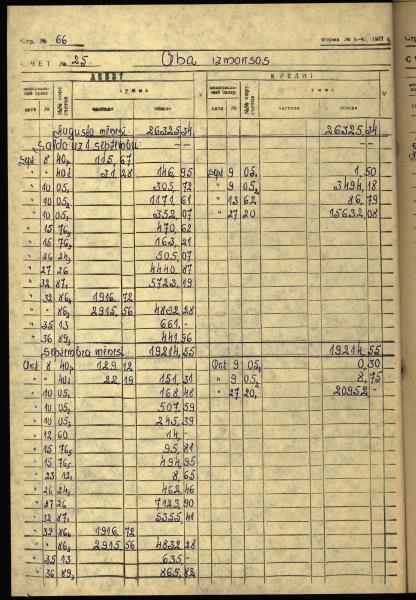 Стр. № 66
Форма № К-41, 1977 г.
СЧЕТ № 25. Oba izmaksas
ДЕБЕТ КРЕДИТ
сумма сумма
дата № №№ кор. счетов частная общая дата № №№ кор. счетов частная общая
Augusta mēnesī 26325,34 26325,34
Saldo uz 1. septembri — — — —
Sept 8 40, 115,67
" " 40, 31,28 146,95 Sept 9 05, 1,50
" 10 05, 305,72 " 9 05, 3494,18
" 10 05, 1171,61 " 13 62 86,79
" 10 05, 352,07 " 27 20 15632,08
" 15 76, 470,62
" 15 76, 163,21
" 26 24, 505,07
" 27 26 4440,87
" 32 87, 5723,19
" 32 86, 1916,72
" " 86, 2915,56 4832,28
" 35 13 661,-
" 36 89, 441,96
Septembra mēnesī 19214,55 19214,55
Okt 8 40, 129,12 Okt 9 05, 0,30
" " 40, 22,19 151,31 " 9 05, 8,75
" 10 05, 168,48 " 27 20, 20952,-
" 10 05, 507,59
" 10 05, 245,39
" 12 60 14,-
" 15 76, 95,81
" 15 76, 494,95
" 23 12, 8,65
" 26 24, 462,46
" 27 26 7123,90
" 32 87, 5355,41
" 32 86, 1916,72
" " 86, 2915,56 4832,28
" 35 13 635,-
" 36 89, 865,82